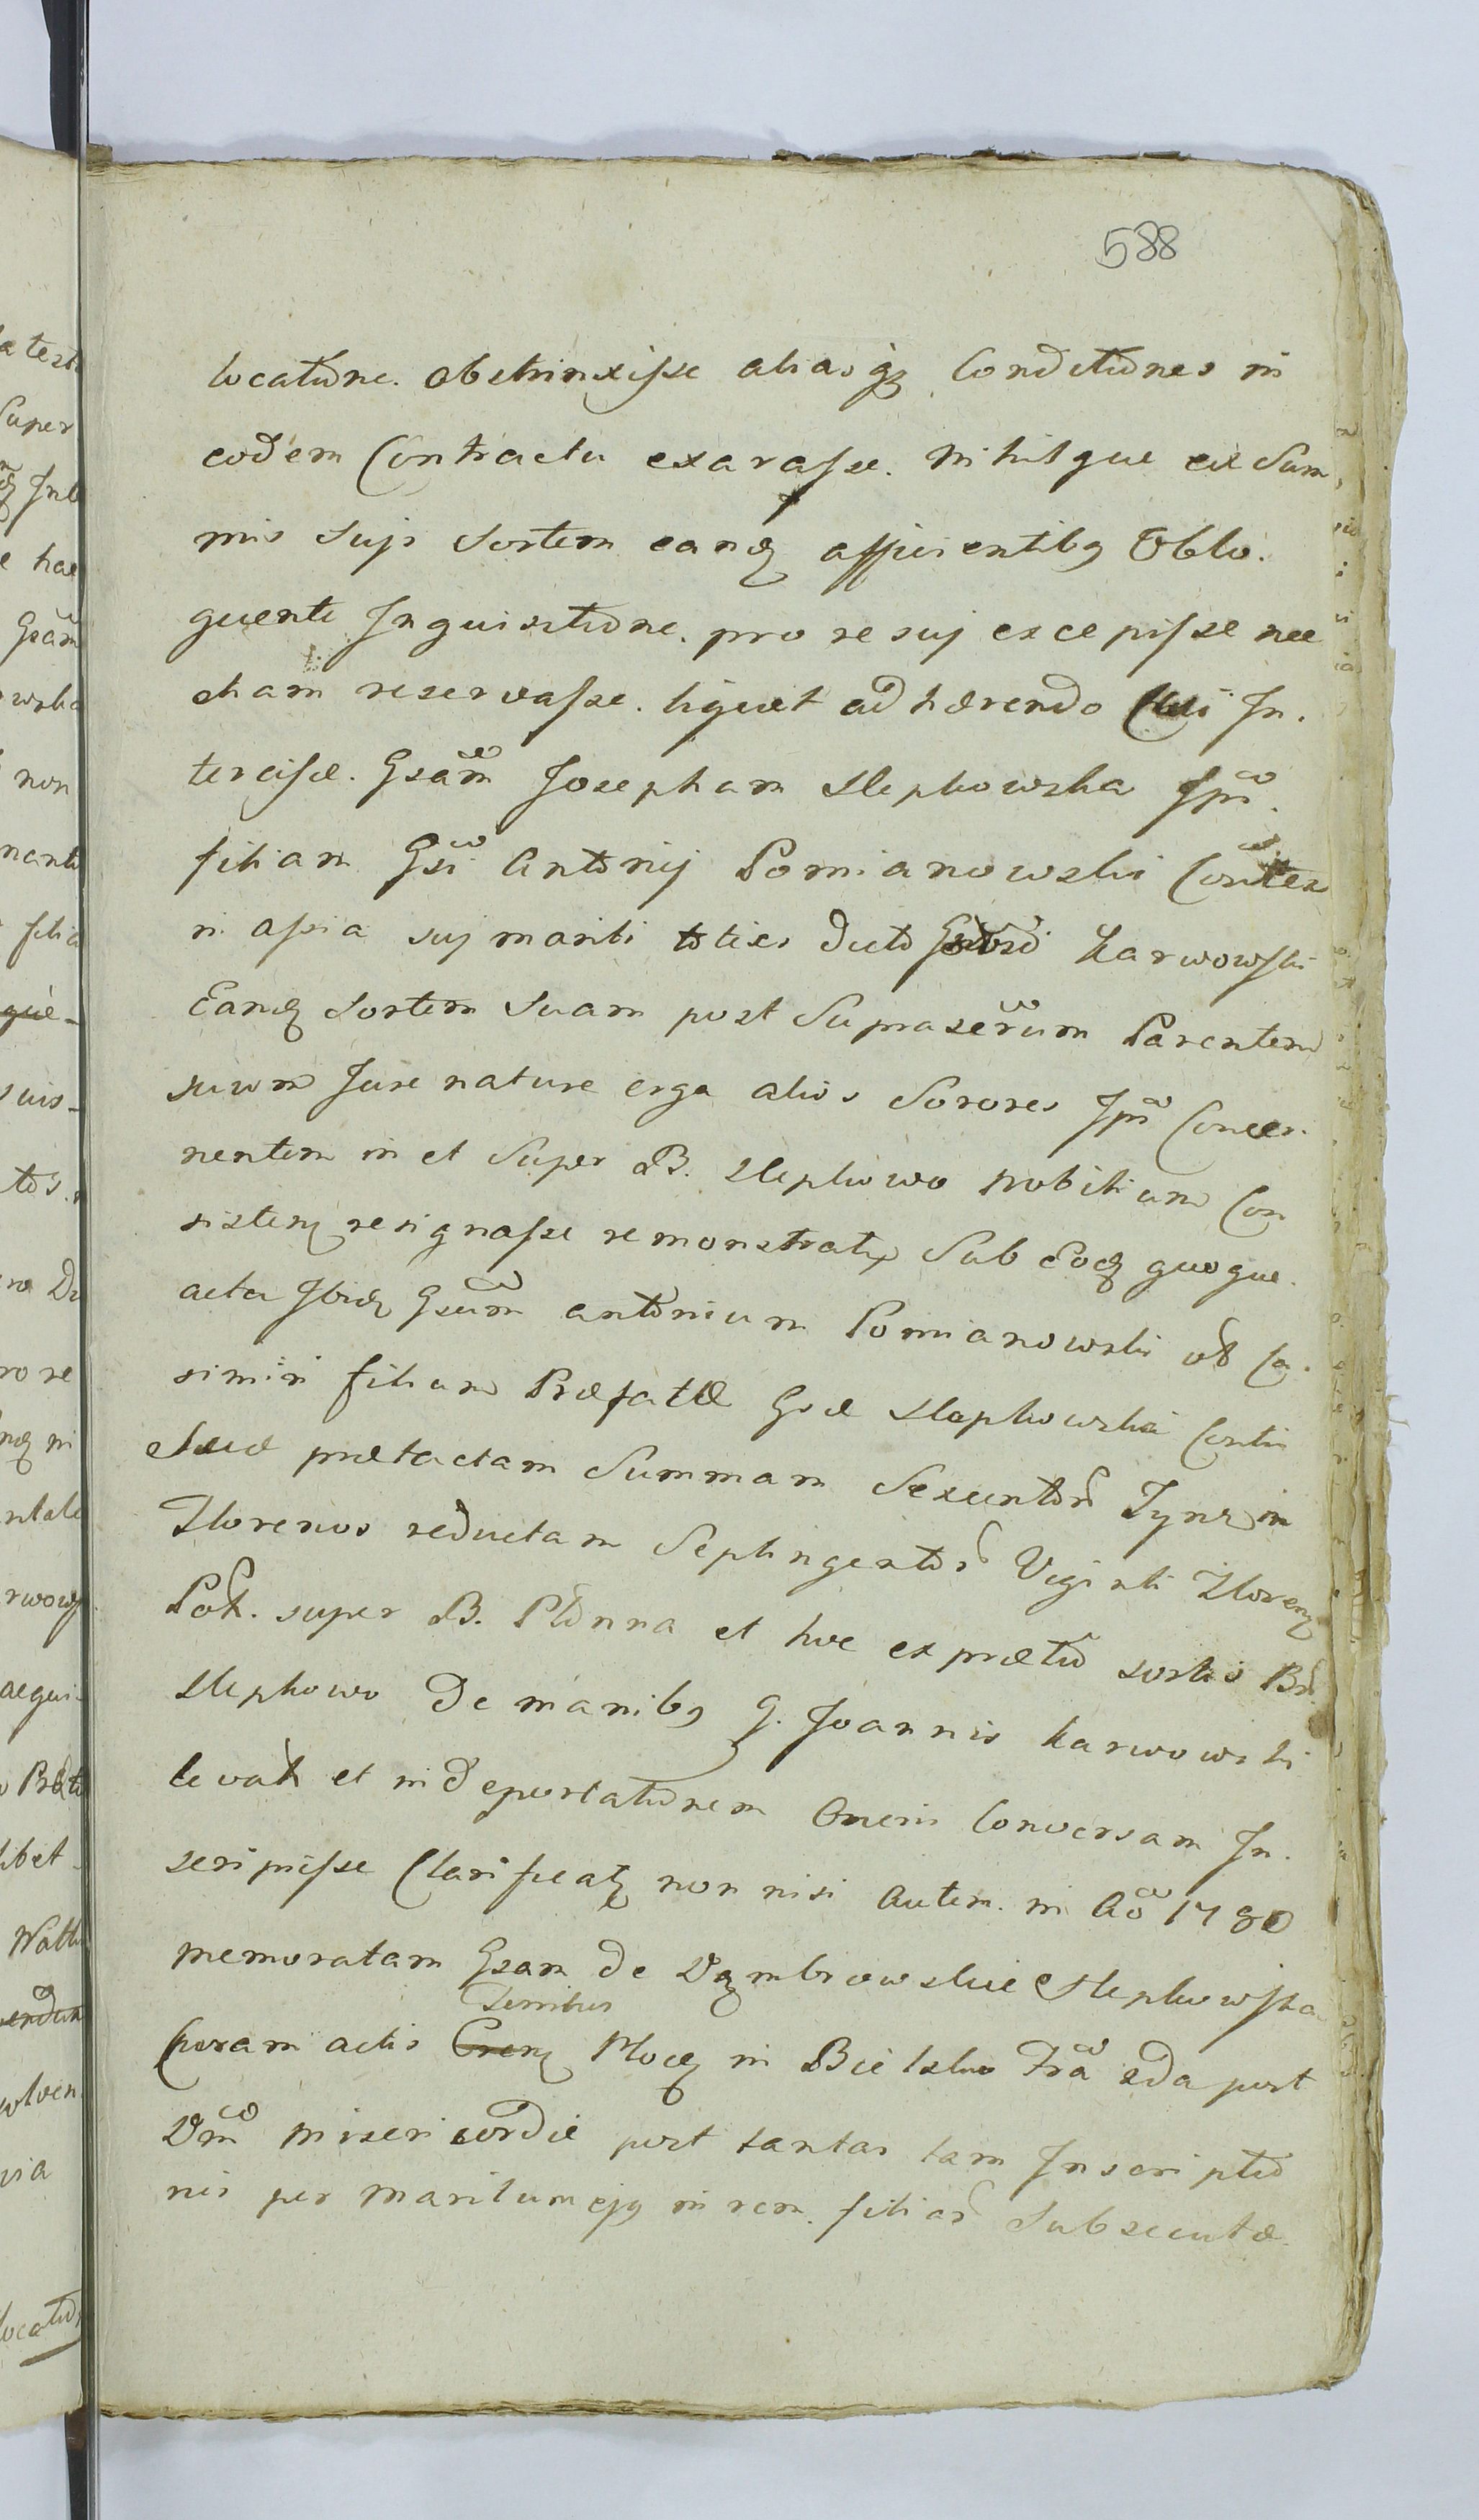 588
locatione. obstrinxisse aliasq₃ Conditiones in
eodem Contractu exarasse. nihilque ex Sum
mis suis Sortem eandꝫ afficientibꝫ Oblo.
quente Inquisitione. pro re sui excepisse nec
etiam reservasse. liquet adhærendo Cui In.
tercisæ. Gsãm Josepham Slepkowska Jpĩ.
filiam Gsĩ Antonij Pomianowski Contex
n assia suj mariti toties dicto Karwowski
Eandꝫ Sortem Suam post Supraserũm Parentem
suum Jure nature erga alios Sorores Jpĩ Concer.
nentem in et Super B. Slepkowo Nobilium Con
sistenꝫ resignasse remonstratꝫ Sub Eodꝫ quoque.
acta Ibidꝫ Gsũm antonium Pomianowski olȋ Ca.
simiri filium Præfatæ Gsæ Slepkowska Contis
Suæ prætactam Summam Sexcentor̃ Tynꝫ in
Florenos reductam Septingentor̃ Viginti Florenꝫ
Pol. super B. Plonna et hoc ex prætio sortis Bñ.
Slepkowo De manibꝫ G. Joannis Karwowski
levat et in deportationem Oneris Conversam In.
scripsisse Clarificatꝫ non nisi Autem. in Aõ 1780
memoratam Gsam De Dąmbrowskie Slepkowska
Terribus
Coram actis Crenꝫ Plocꝫ in Bielsko Frã 2da post
Dm̃ misericordie post tantas tam Inscriptio
nis per Maritum ejꝫ in rem. filiar̃ Subsecutæ